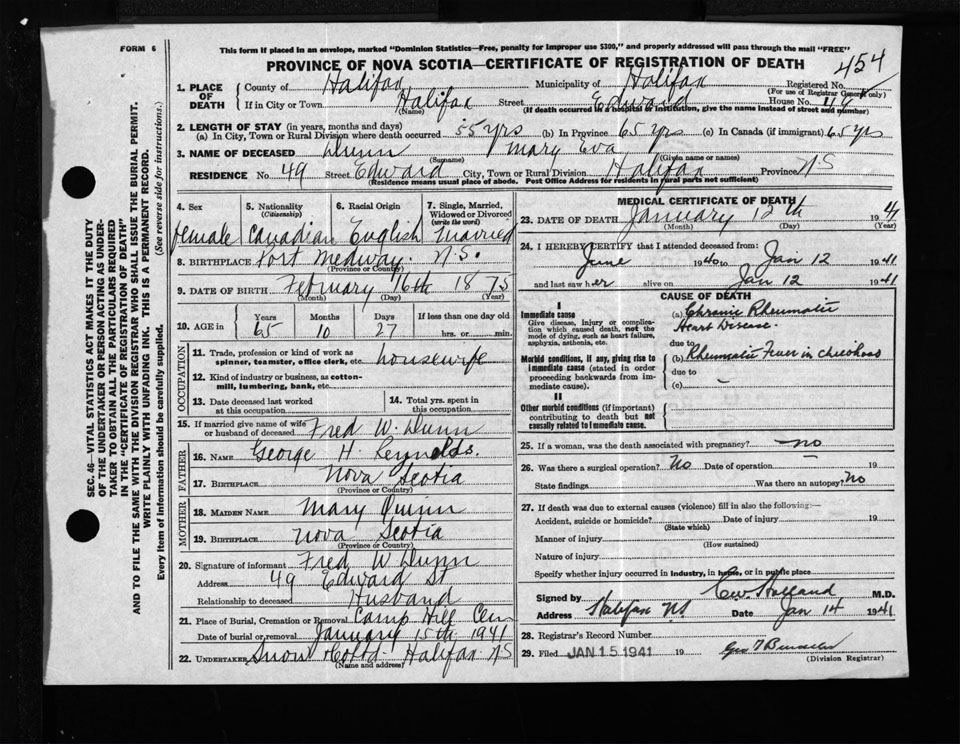 FORM 6
This form if placed in an envelope, marked "Dominion Statistics—Free, penalty for improper use $300," and properly addressed will pass through the mail "FREE"
PROVINCE OF NOVA SCOTIA—CERTIFICATE OF REGISTRATION OF DEATH
454
1. PLACE OF DEATH County of Halifax Municipality of Halifax Registered No.
(For use of Registrar General only)
If in City or Town Halifax Street Edward House No. 49
(Name) (If death occurred in a hospital or institution, give the name instead of street and number)
2. LENGTH OF STAY (in years, months and days)
(a) In City, Town or Rural Division where death occurred 55 yrs (b) In Province 65 yrs (c) In Canada (if immigrant) 65 yrs
3. NAME OF DECEASED Dunn Mary Eva
(Surname) (Given name or names)
RESIDENCE No. 49 Street Edward City, Town or Rural Division Halifax Province NS
(Residence means usual place of abode. Post Office Address for residents in rural parts not sufficient)
4. Sex 5. Nationality (Citizenship) 6. Racial Origin 7. Single, Married, Widowed or Divorced (write the word)
female Canadian English Married
8. BIRTHPLACE Port Medway. N.S.
(Province or County)
9. DATE OF BIRTH February 16th 1875
(Month) (Day) (Year)
10. AGE in Years Months Days If less than one day old
65 10 27 hrs. or min.
OCCUPATION
11. Trade, profession or kind of work as spinner, teamster, office clerk, etc. housewife
12. Kind of industry or business, as cotton-mill, lumbering, bank, etc.
13. Date deceased last worked at this occupation
14. Total yrs. spent in this occupation
15. If married give name of wife or husband of deceased Fred W. Dunn
FATHER
16. NAME George H. Reynolds.
17. BIRTHPLACE Nova Scotia
(Province or Country)
MOTHER
18. MAIDEN NAME Mary Quinn
19. BIRTHPLACE Nova Scotia
(Province or Country)
20. Signature of informant Fred W Dunn
Address 49 Edward St
Relationship to deceased Husband
21. Place of Burial, Cremation or Removal Camp Hill Cem
Date of burial or removal January 15th 1941
22. UNDERTAKER Snow Co Ltd. Halifax NS
(Name and address)
MEDICAL CERTIFICATE OF DEATH
23. DATE OF DEATH January 12th 1941
(Month) (Day) (Year)
24. I HEREBY CERTIFY that I attended deceased from:
June 1940 to Jan 12 1941
and last saw her alive on Jan 12 1941
CAUSE OF DEATH
I
Immediate cause
Give disease, injury or complication which caused death, not the mode of dying, such as heart failure, asphyxia, asthenia, etc.
(a) Chronic Rheumatic Heart Disease.
due to
Morbid conditions, if any, giving rise to immediate cause (stated in order proceeding backwards from immediate cause).
(b) Rheumatic Fever in childhood
due to
(c) –
II
Other morbid conditions (if important) contributing to death but not causally related to immediate cause.
25. If a woman, was the death associated with pregnancy? no
26. Was there a surgical operation? No Date of operation – 19
State findings Was there an autopsy? No
27. If death was due to external causes (violence) fill in also the following:—
Accident, suicide or homicide? Date of injury 19
(State which)
Manner of injury
(How sustained)
Nature of injury
Specify whether injury occurred in industry, in home, or in public place
Signed by C.W. Holland M.D.
Address Halifax NS Date Jan 14 1941
28. Registrar's Record Number
29. Filed JAN 15 1941 19
(Division Registrar)
SEC. 46—VITAL STATISTICS ACT MAKES IT THE DUTY
OF THE UNDERTAKER OR PERSON ACTING AS UNDER-
TAKER TO OBTAIN ALL THE PARTICULARS REQUIRED
IN THE "CERTIFICATE OF REGISTRATION OF DEATH"
AND TO FILE THE SAME WITH THE DIVISION REGISTRAR WHO SHALL ISSUE THE BURIAL PERMIT.
WRITE PLAINLY WITH UNFADING INK. THIS IS A PERMANENT RECORD.
Every item of information should be carefully supplied. (See reverse side for instructions.)